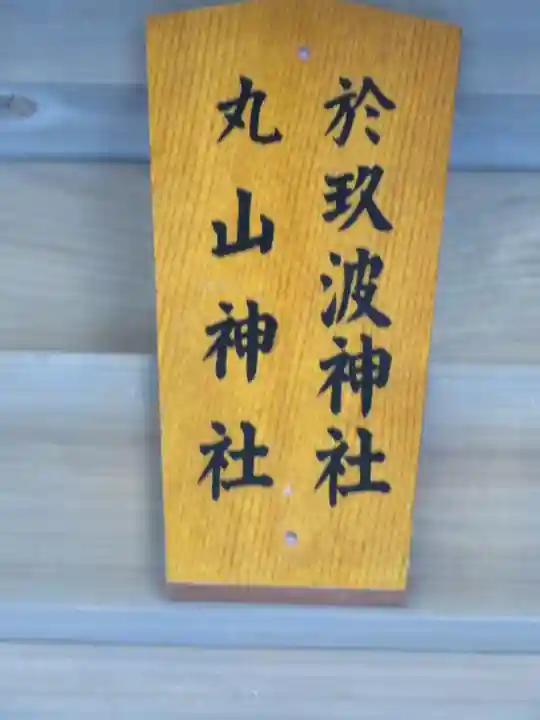 於玖波神社
丸山神社